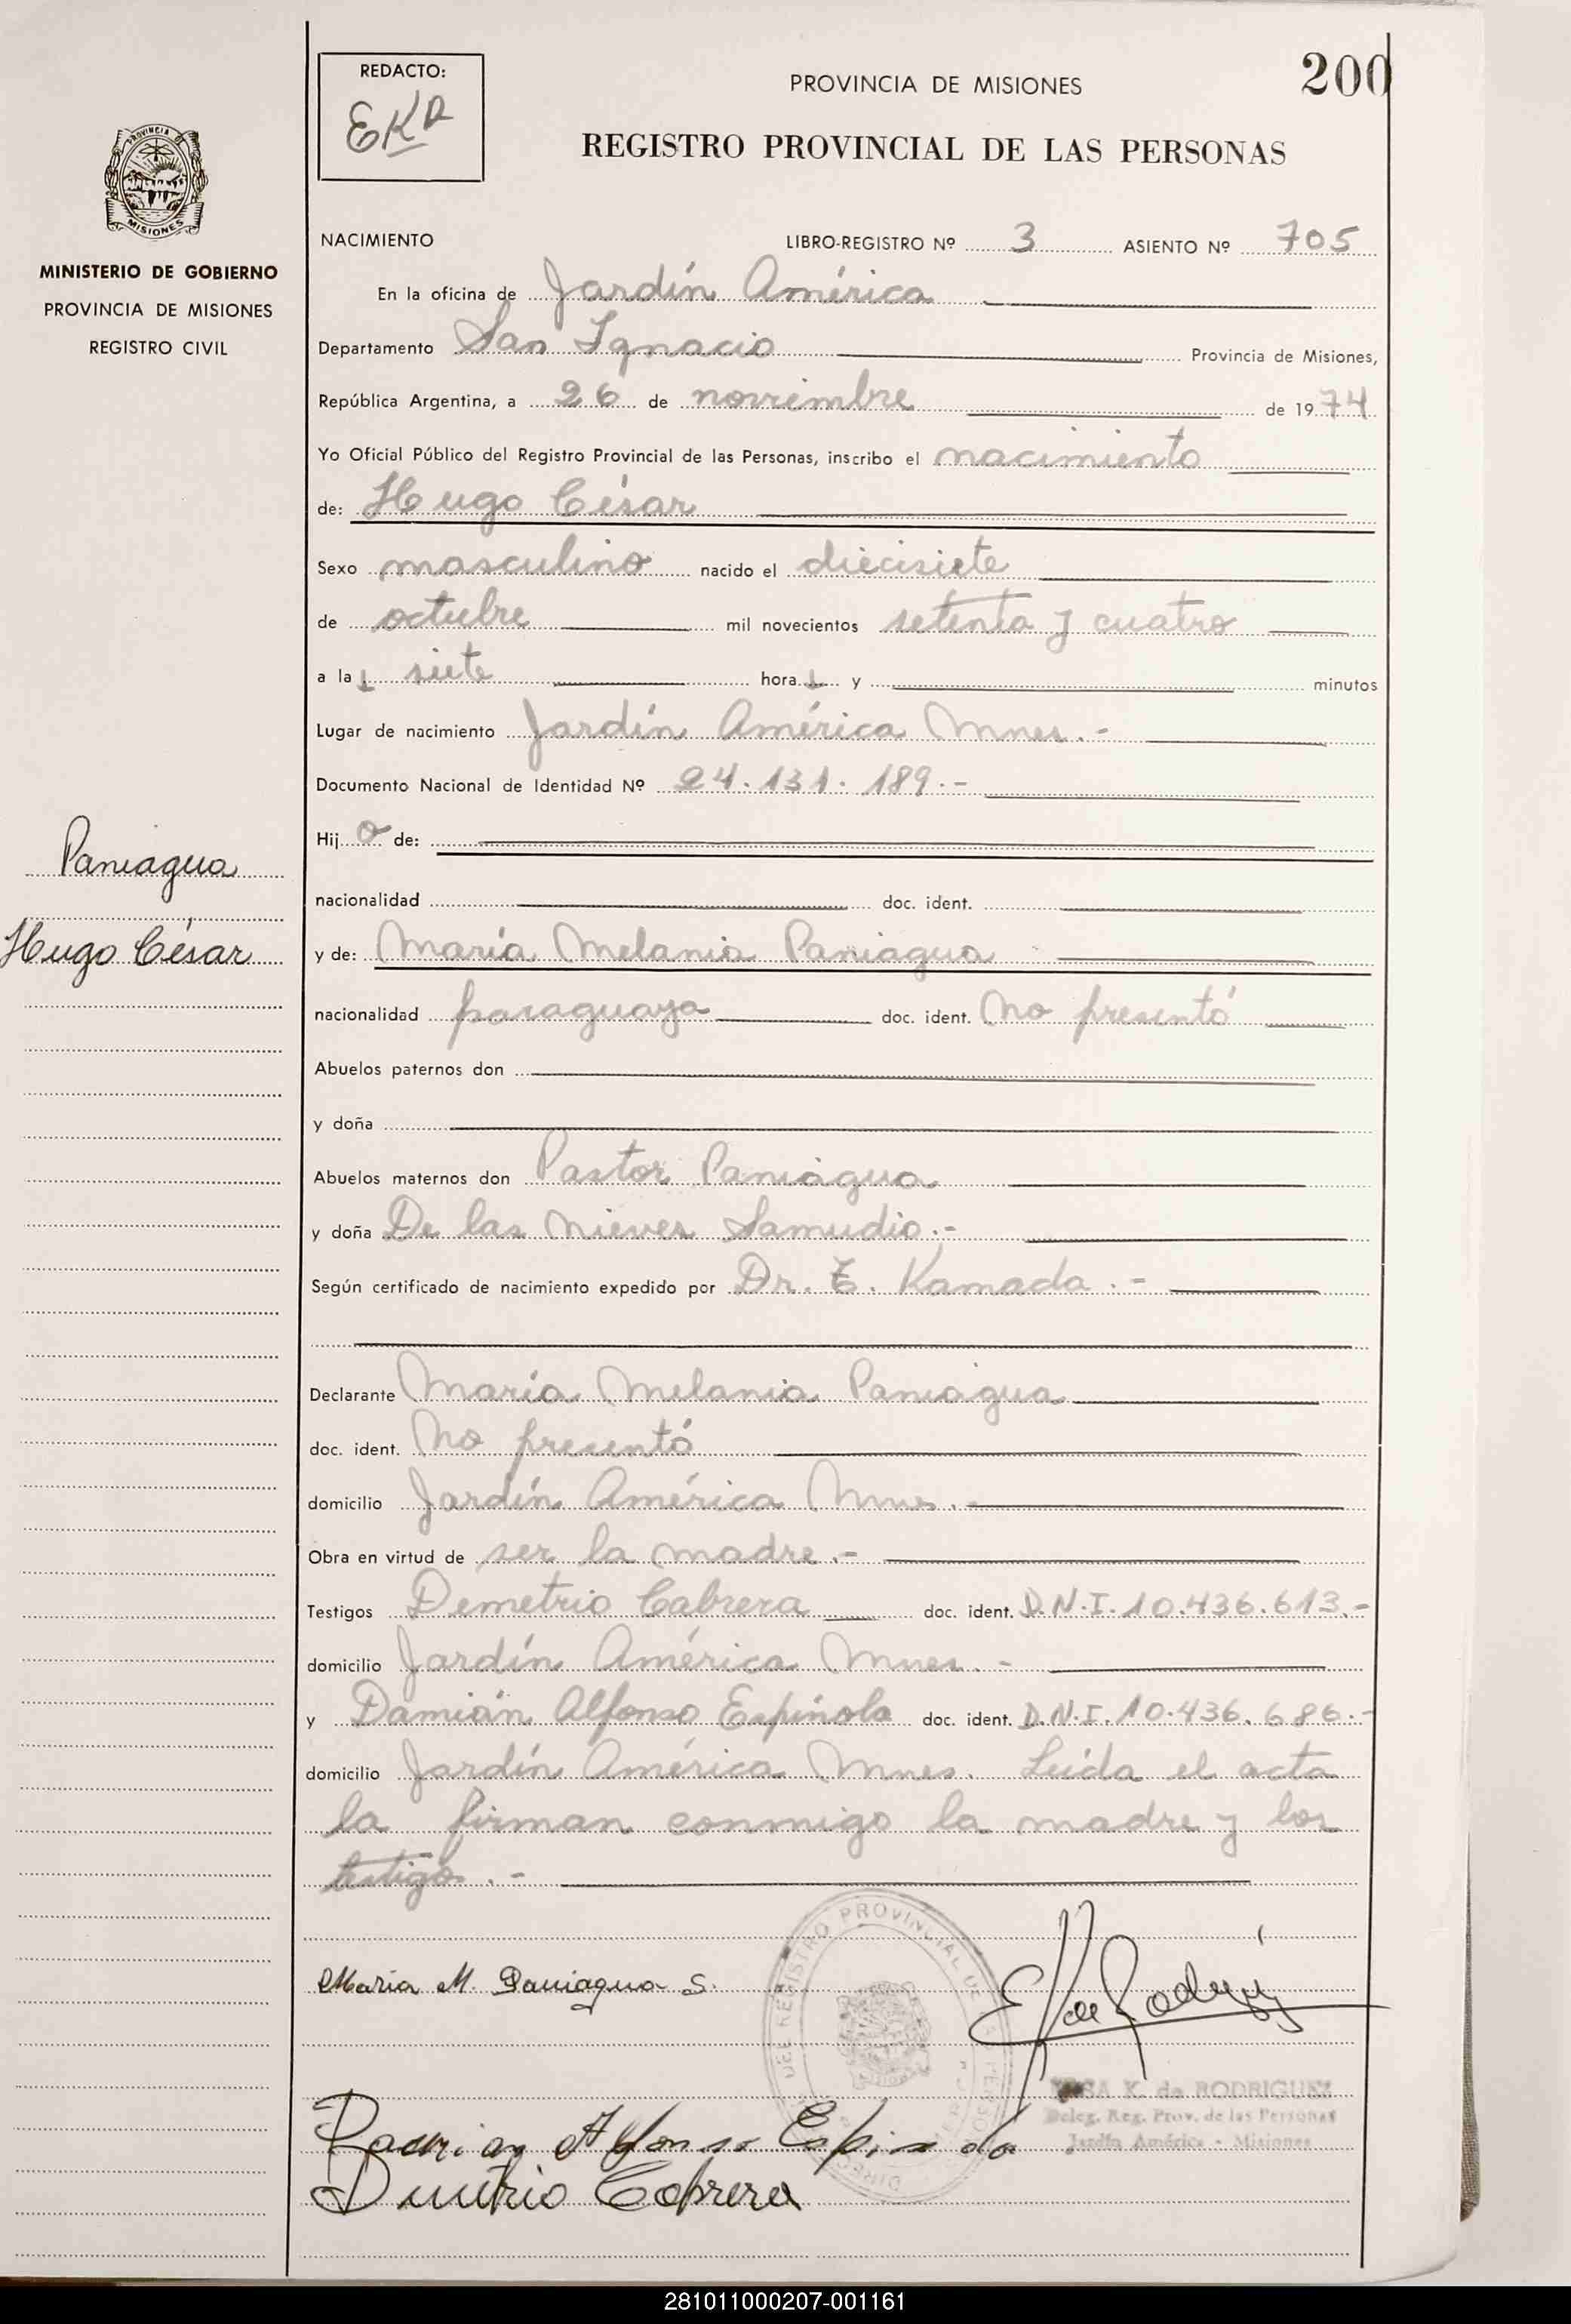 200
REDACTO:
EKR
PROVINCIA DE MISIONES
REGISTRO PROVINCIAL DE LAS PERSONAS
PROVINCIA DE
MISIONES
MINISTERIO DE GOBIERNO
PROVINCIA DE MISIONES
REGISTRO CIVIL
NACIMIENTO LIBRO-REGISTRO Nº 3 ASIENTO Nº 705
En la oficina de Jardín América
Departamento San Ignacio Provincia de Misiones,
República Argentina, a 26 de noviembre de 1974
Yo Oficial Público del Registro Provincial de las Personas, inscribo el nacimiento
de: Hugo César
Sexo masculino nacido el diecisiete
de octubre mil novecientos setenta y cuatro
a las siete horas y minutos
Lugar de nacimiento Jardín América Mnes.-
Documento Nacional de Identidad Nº 24.131.189.-
Hijo de:
Paniagua
Hugo César
nacionalidad doc. ident.
y de: María Melania Paniagua
nacionalidad paraguaya doc. ident. No presentó
Abuelos paternos don
y doña
Abuelos maternos don Pastor Paniagua
y doña De las Nieves Samudio.-
Según certificado de nacimiento expedido por Dr. T. Kamada.-
Declarante María Melania Paniagua
doc. ident. No presentó
domicilio Jardín América Mnes.-
Obra en virtud de ser la madre.-
Testigos Demetrio Cabrera doc. ident. D.N.I. 10.436.613.-
domicilio Jardín América Mnes.-
y Damián Alfonso Espínola doc. ident. D.N.I. 10.436.686.-
domicilio Jardín América Mnes. Leída el acta
la firman conmigo la madre y los
testigos.-
María M. Paniagua S.
E K de Rodríguez
K. de RODRIGUEZ
Deleg. Reg. Prov. de las Personas
Jardín América - Misiones
Damian Alfonso Espinola
Dmitrio Cabrera
281011000207-001161